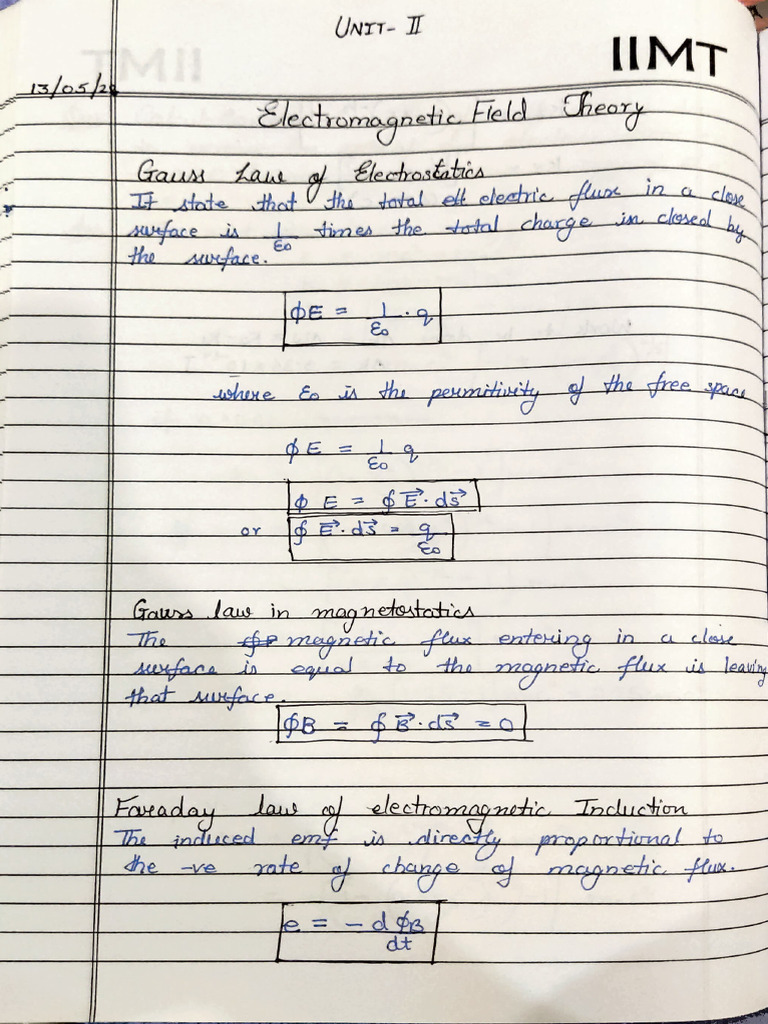 UNIT- II
IIMT
13/05/2
Electromagnetic Field Theory
Gauss Law of Electrostatics
It state that the total electric flux in a close
surface is 1/ε₀ times the total charge in closed by
the surface.
ϕE = 1/ε₀ · q
where ε₀ is the permitivity of the free space
ϕE = 1/ε₀ q
ϕ E = ∮ E⃗ · ds⃗
or ∮ E⃗ · ds⃗ = q/ε₀
Gauss law in magnetostatics
The magnetic flux entering in a close
surface is equal to the magnetic flux is leaving
that surface.
ϕB = ∮ B⃗ · ds⃗ = 0
Faraday law of electromagnetic Induction
The induced emf is directly proportional to
the -ve rate of change of magnetic flux.
e = - d ϕB/dt